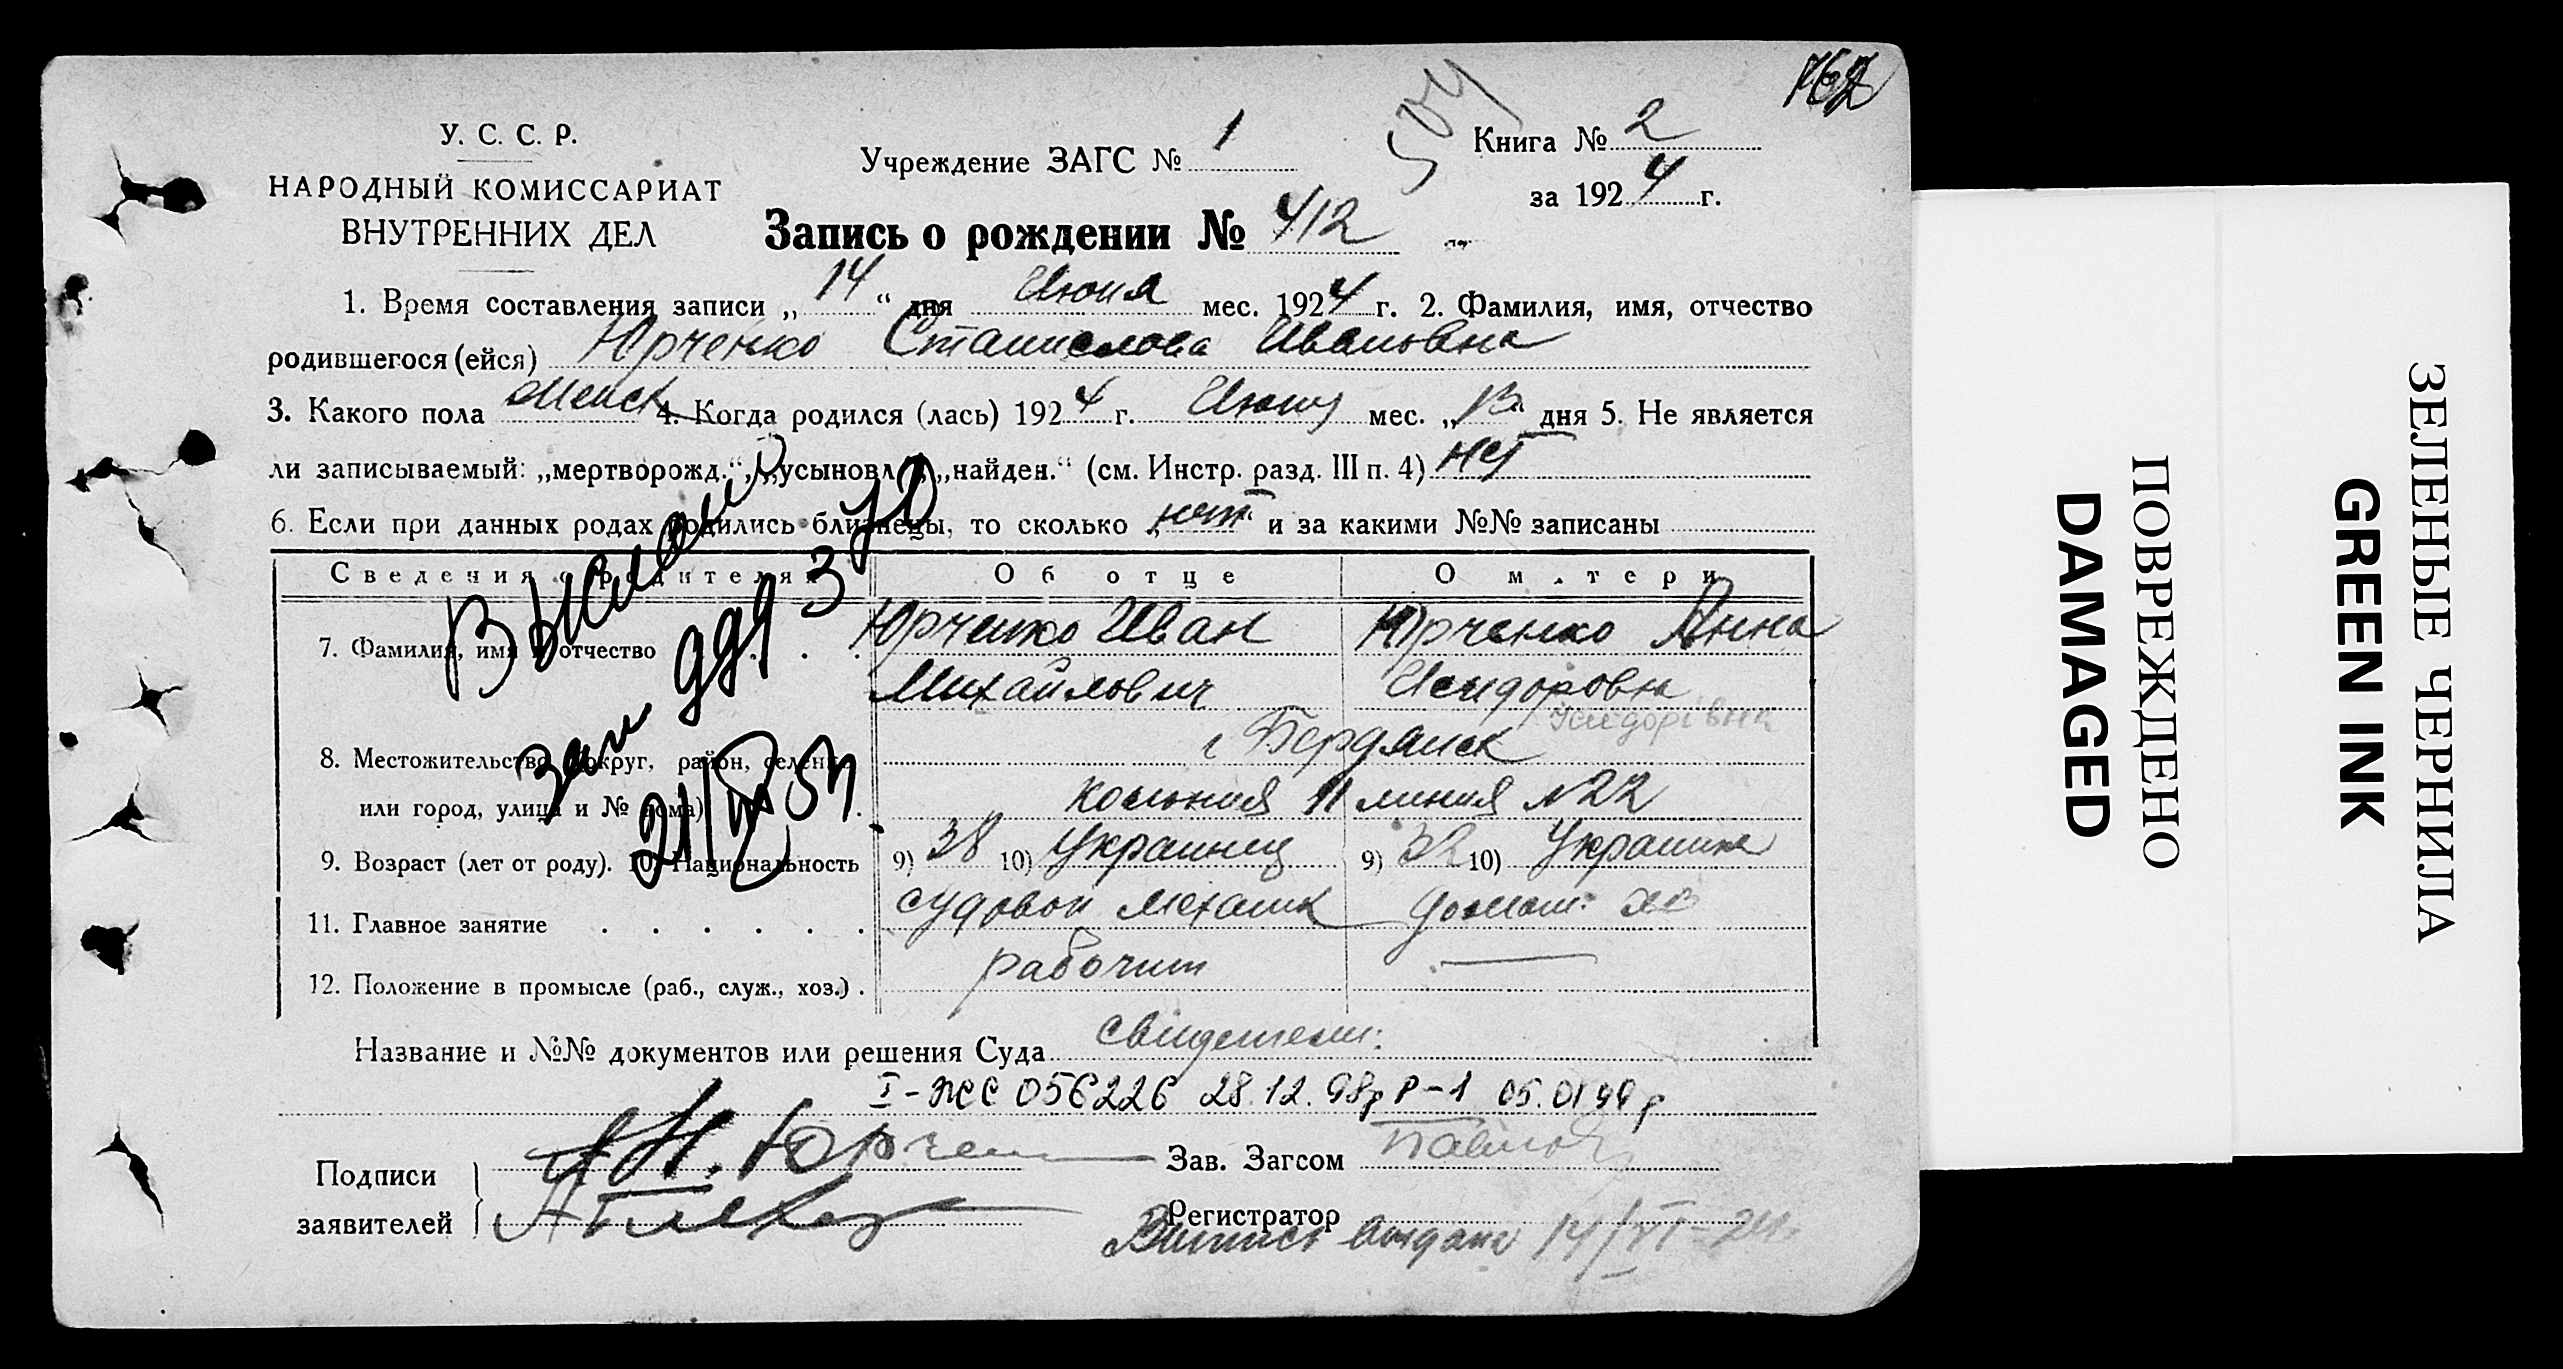 У. С. С. Р.
НАРОДНЫЙ КОМИССАРИАТ
ВНУТРЕННИХ ДЕЛ
Учреждение ЗАГС № 1
504
Книга № 2
за 1924 г.
162
Запись о рождении № 412
1. Время составления записи „14“ дня Июня мес. 1924 г. 2. Фамилия, имя, отчество
родившегося (ейся) Юрченко Станислова Ивановна
3. Какого пола женск 4. Когда родился (лась) 1924 г. Июня мес. „13“ дня 5. Не является
ли записываемый: „мертворожд.“, „усыновл.“, „найден.“ (см. Инстр. разд. III п. 4) нет
6. Если при данных родах родились близнецы, то сколько „нет“ и за какими №№ записаны
Сведения о родителях
Об отце
О матери
7. Фамилия, имя и отчество
Юрченко Иван
Михайлович
Юрченко Анна
Исидоровн
Ісидорівна
8. Местожительство (округ, район, селение
или город, улица и № дома)
г Бердянск
колония 11 линия №22
9. Возраст (лет от роду). 10. Национальность
9) 38 10) Украинец
9) 32 10) Украинка
11. Главное занятие
судовой механик
домаш: хоз
12. Положение в промысле (раб., служ., хоз.)
рабочий
Название и №№ документов или решения Суда свидетели:
I-ЖС 056226 28.12.98р Р-1 05.01 99 р
Подписи
заявителей
Юрчен
Зав. Загсом
Регистратор
Выпись выдана 14/VI-24г.
ПОВРЕЖДЕНО
DAMAGED
ЗЕЛЕНЫЕ ЧЕРНИЛА
GREEN INK